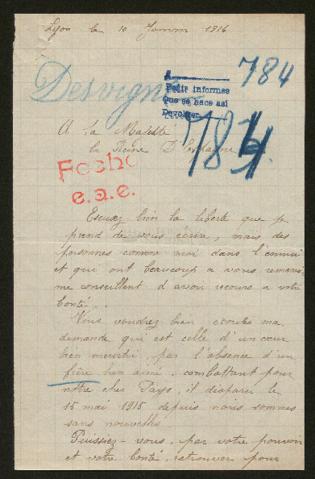 Lyon le 10 Janvier 1916
784
Desvignes
A
Pedir informes
Que se hace asi
Devolver
A sa Majesté
la Reine D'Espagne
784
Fecho
e.a.e.
Excusez bien la liberté que je
prend de vous écrire, mais des
personnes comme moi dans l'ennui
et qui ont beaucoup a vous remercier
me conseillent d'avoir recours a votre
bonté.
Vous voudrez bien écoutez ma
demande qui est celle d'un cœur
bien meurtri par l'absence d'un
frère bien aimé, combattant pour
notre cher Pays, il disparu le
15 mai 1915 depuis nous sommes
sans nouvelles.
Puissiez-vous, par votre pouvoir
et votre bonté, retrouver pour